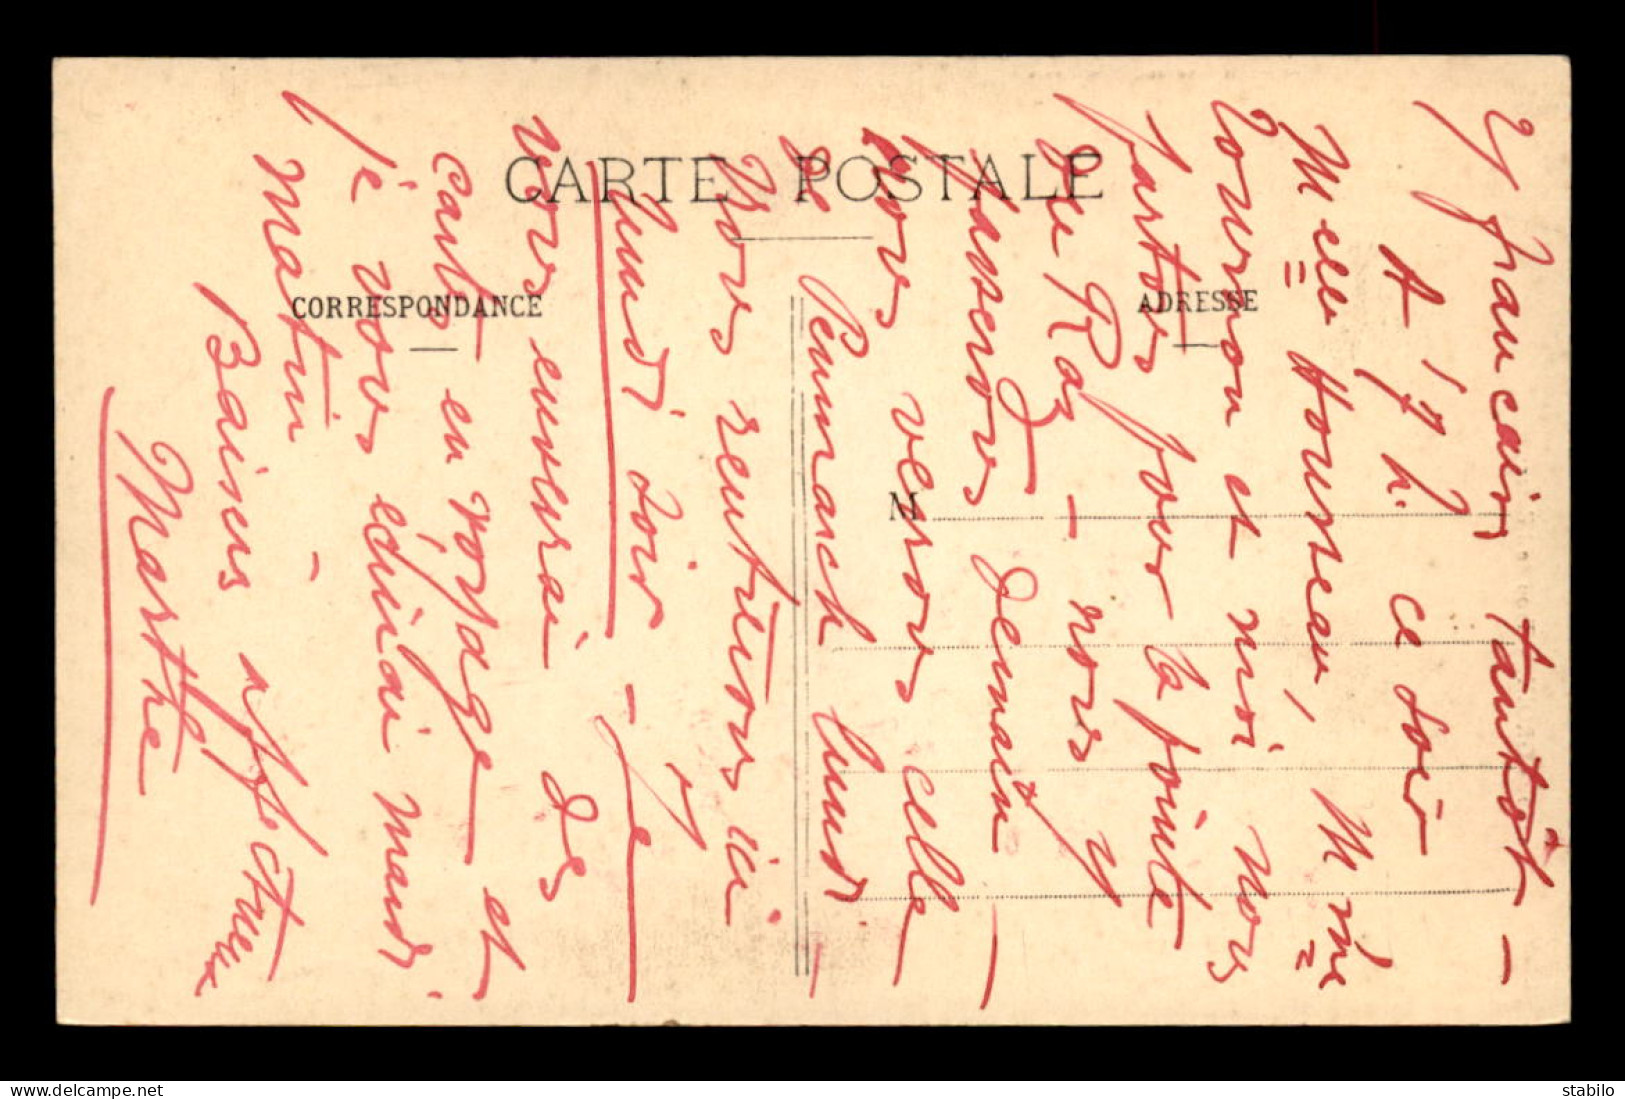 CARTE POSTALE
CORRESPONDANCE
ADRESSE
M
tantôt –
A 7 h. ce soir
Melle Hourseau, Mme
et moi nous
partons pour la pointe
du Raz – nous y
passerons demain –
nous verrons celle
de Penmarch lundi
nous rentrerons ici
lundi soir – Je
vous enverrai des
cartes en voyage et
je vous écrirai mardi
matin –
Baisers affectueux
Marthe
delcampe.net
stabilo